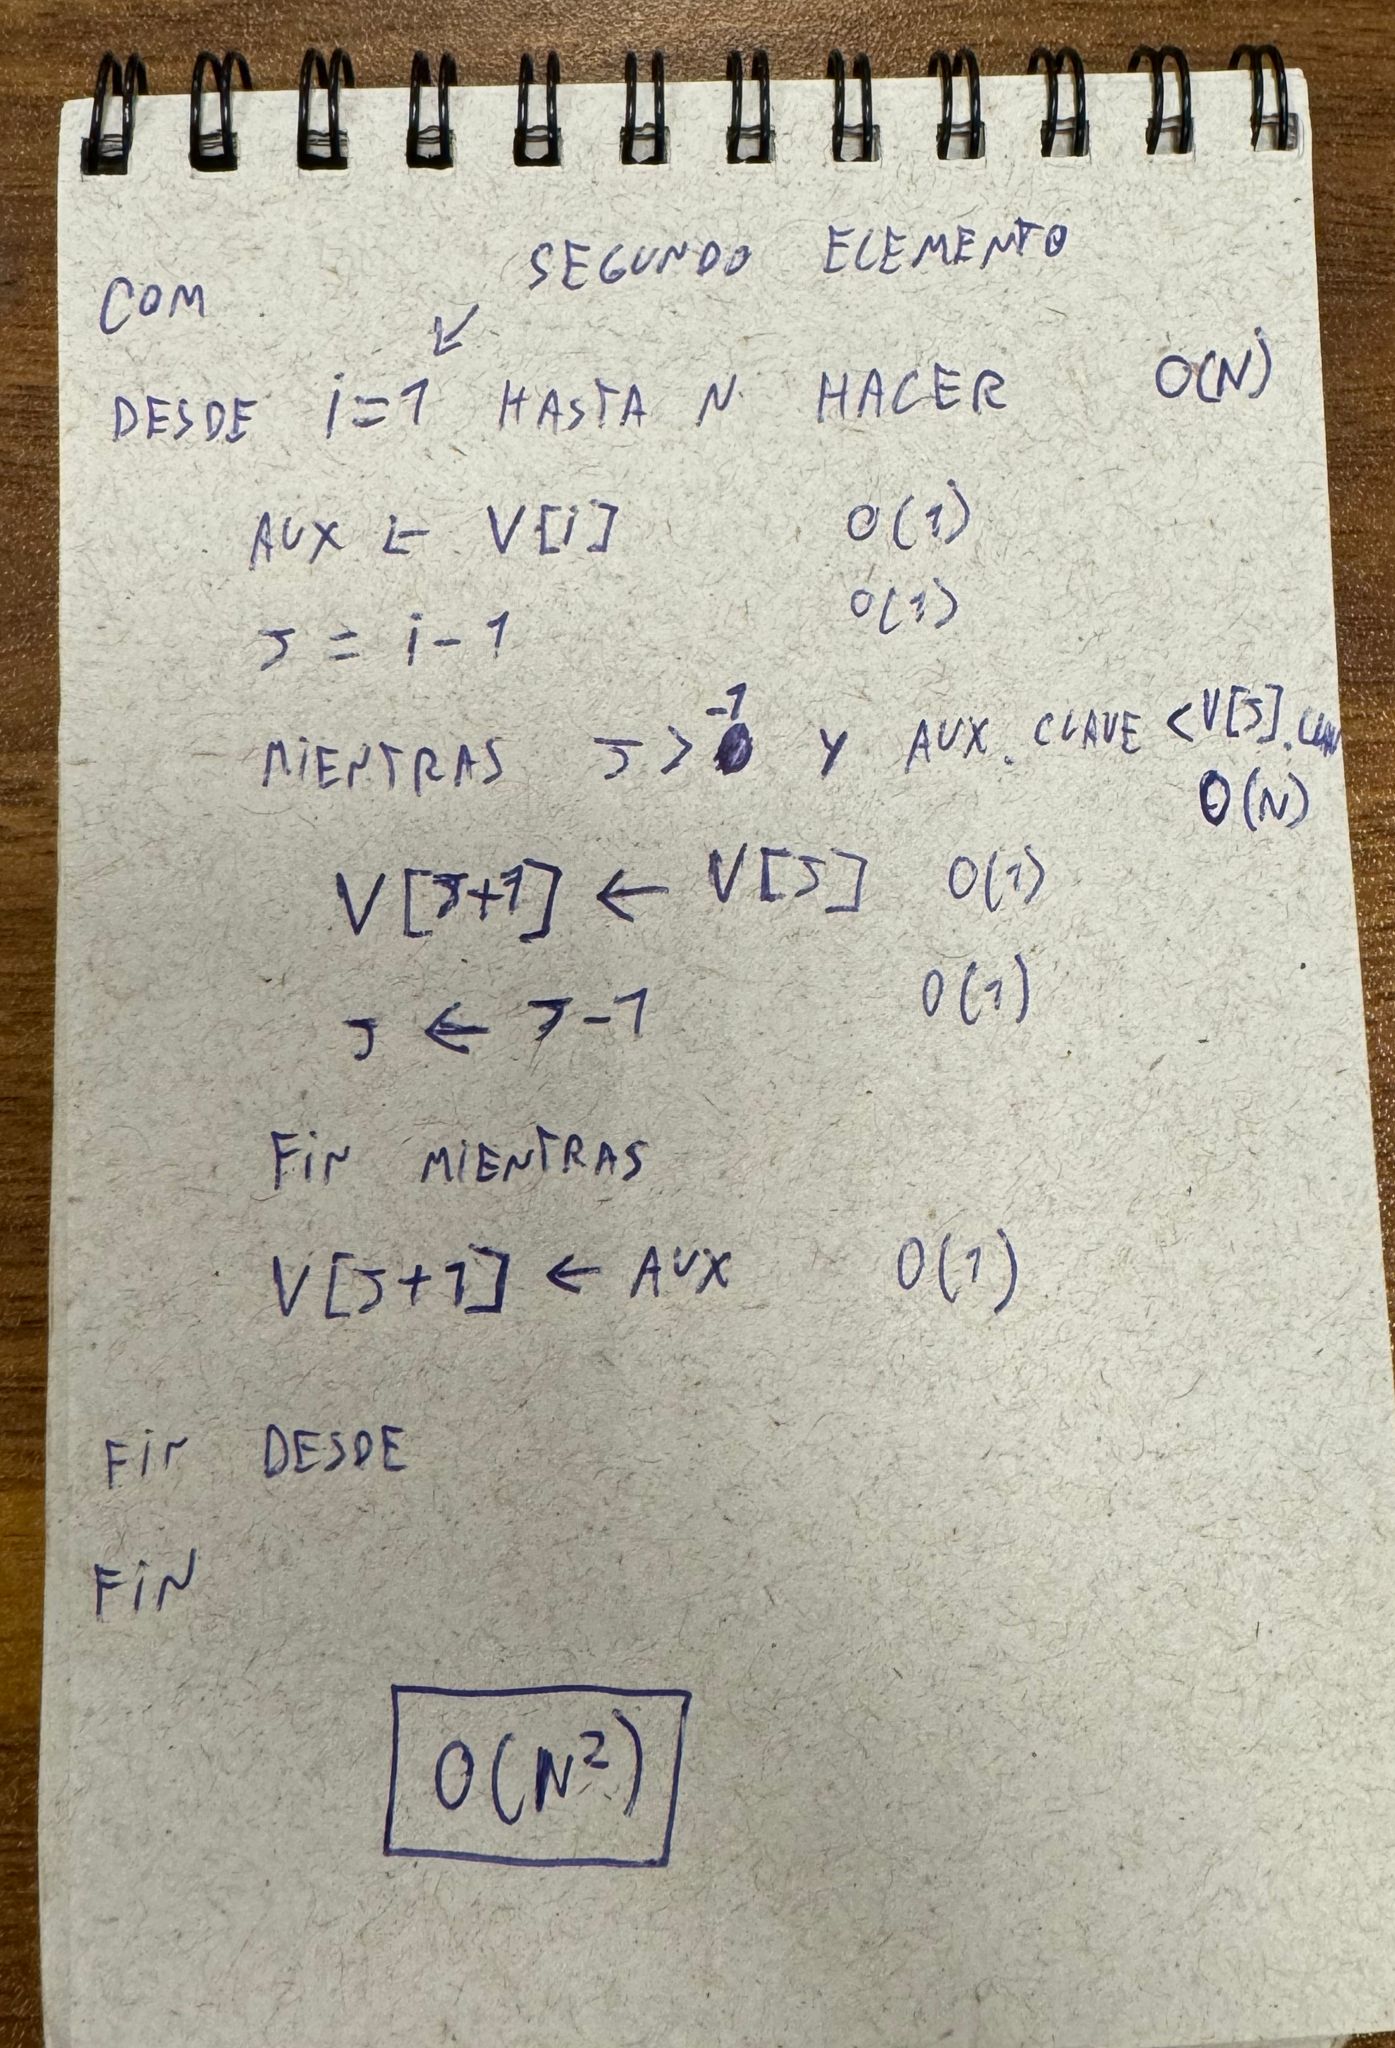 SEGUNDO ELEMENTO
COM
↙
DESDE i=1 HASTA N HACER O(N)
AUX ← V[i] O(1)
J = i-1 O(1)
-1
MIENTRAS J > Y AUX.CLAVE < V[J].CLAV
O(N)
V[J+1] ← V[J] O(1)
J ← J-1 O(1)
FiN MiENTRAS
V[J+1] ← AUX O(1)
FiN DESDE
FiN
O(N²)